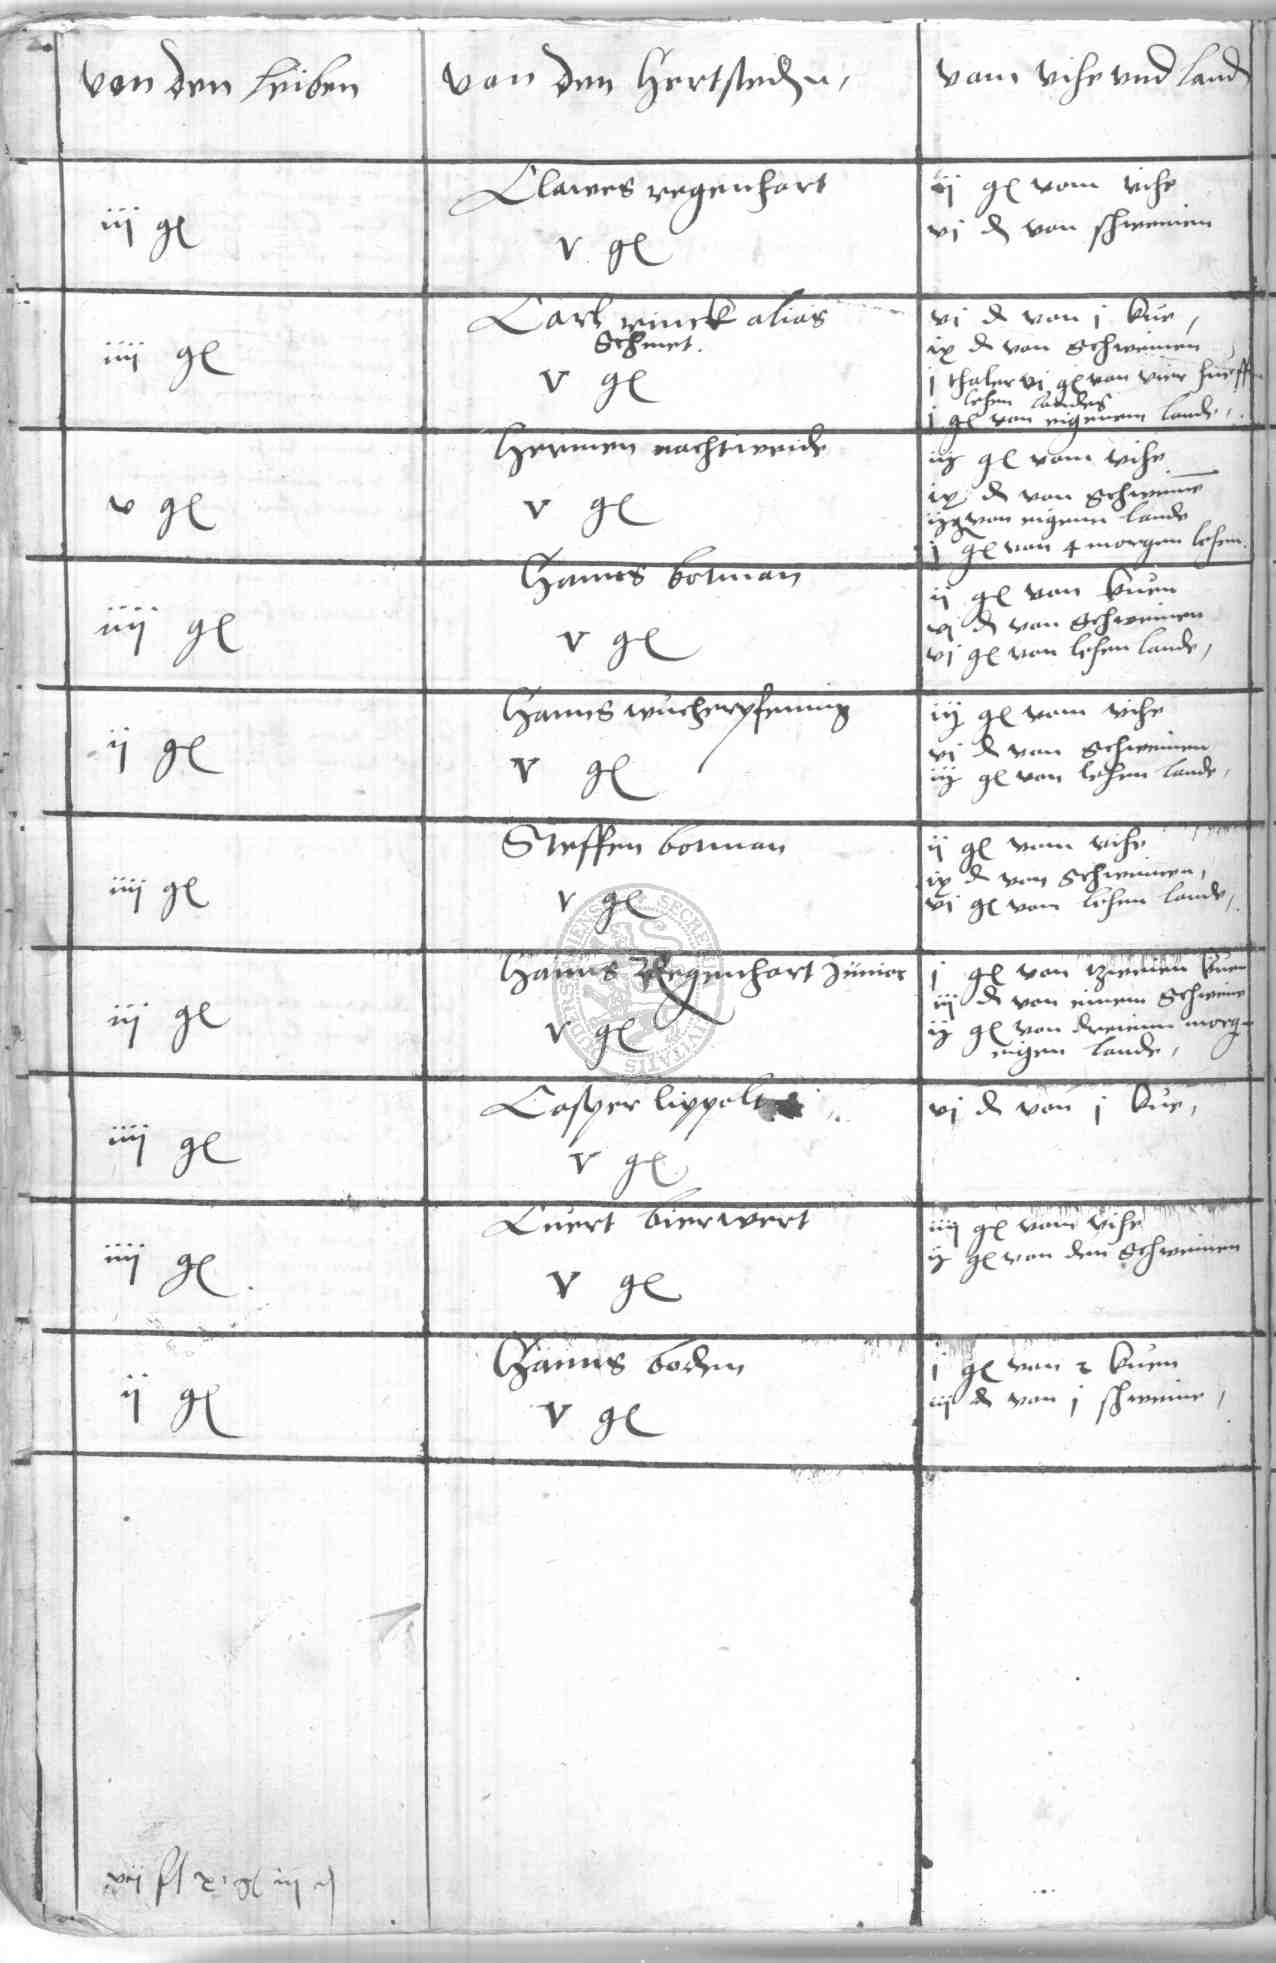 von den leiben von den Hertsteden, vam vihe vnd land
Clawes regenhart
iij gl
v gl
ij gl vom vihe
vj d von schweinen
Carl rinck alias
Schmet.
iiij gl
v gl
vj d von j kue,
ix d von Schweinen
j thaler vj gl von vier hueffen
lehen landes
j gl von eigenem lande,
Hermen nachtweide
v gl
v gl
iij gl vom vihe
ix d von Schweine
von eigenem lande
j gl von 4 morgen lehen.
Hanns botman
iiij gl
v gl
ij gl von kuen
vj d von Schweinen
vj gl von lehen lande,
Hanns wucherpfennig
ij gl
v gl
iij gl vom vihe
vj d von Schweinen
iij gl von lehen lande,
Steffen botman
iiij gl
v gl
ij gl vom vihe
ix d von Schweinen,
vj gl von lehen lande,
Hanns Regenhart Junior
iij gl
v gl
j gl von zweien kuen
iij d von einem Schweine
ij gl von dreien morg
eigen lande,
Casper lippolt
iiij gl
v gl
vj d von j kue,
Curt bierwert
iiij gl
v gl
iiij gl vom vihe
ij gl von den Schweinen
Hanns boden
ij gl
v gl
j gl von 2 kuen
iij d von j schweine,
vij fl x gl iij d